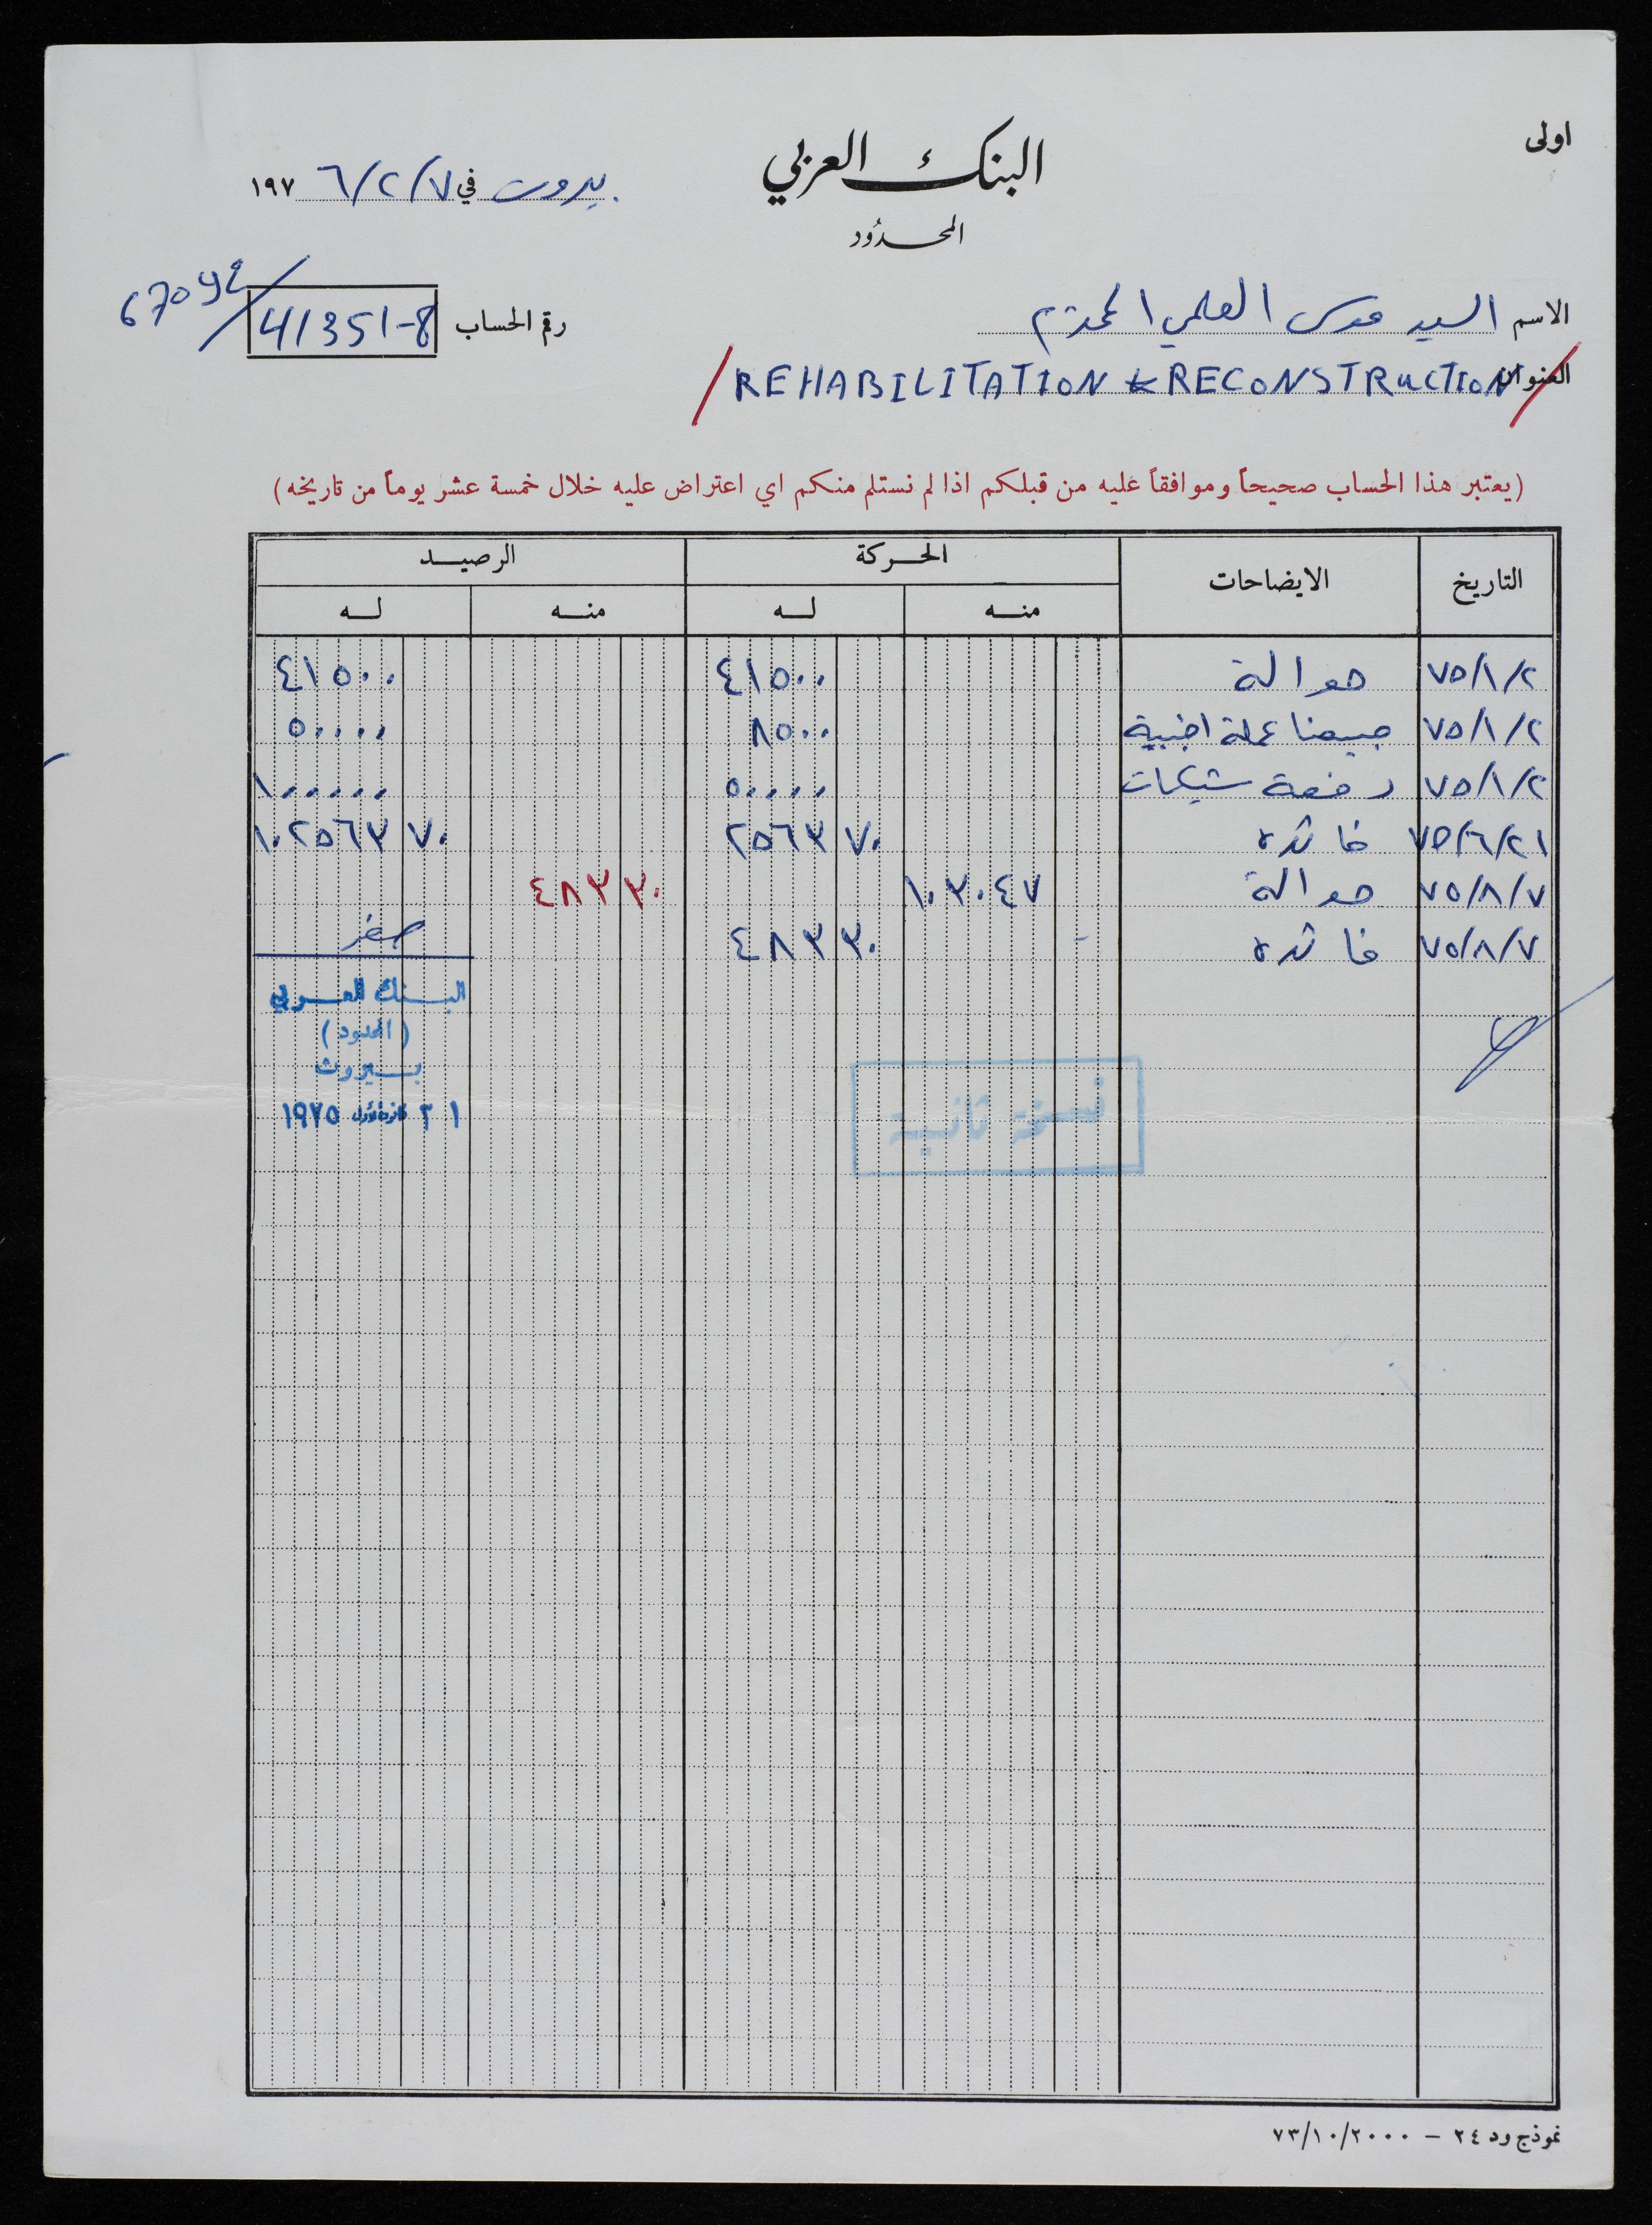 اولى
البنك العربي
المحدود
بيروت في ٧/٢/١٩٧٦
الاسم السيد موسى العلمي المحترم
رقم الحساب 41351-8
67092
العنوان REHABILITATION & RECONSTRUCTION
(يعتبر هذا الحساب صحيحاً وموافقاً عليه من قبلكم اذا لم نستلم منكم اي اعتراض عليه خلال خمسة عشر يوماً من تاريخه)
التاريخ الايضاحات الحركة الرصيد
منه له منه له
٧٥/١/٢ حوالة ٤١٥٠٠ ٤١٥٠٠
٧٥/١/٢ مبيعنا عملة اجنبية ٨٥٠٠ ٥٠٠٠٠
٧٥/١/٢ دفعة شيكات ٥٠٠٠٠ ١٠٠٠٠٠
٧٥/٦/٢١ فائده ٢٥٦٣ ٧٠ ١٠٢٥٦٣ ٧٠
٧٥/٨/٧ حوالة ١٠٣٠٤٧ ٤٨٣ ٣٠
٧٥/٨/٧ فائده ٤٨٣ ٣٠ صفر
البنك العربي
(المحدود)
بيروت
٣١ كانون الأول ١٩٧٥
نسخة ثانية
نموذج ود ٢٤ – ٧٣/١٠/٢٠٠٠